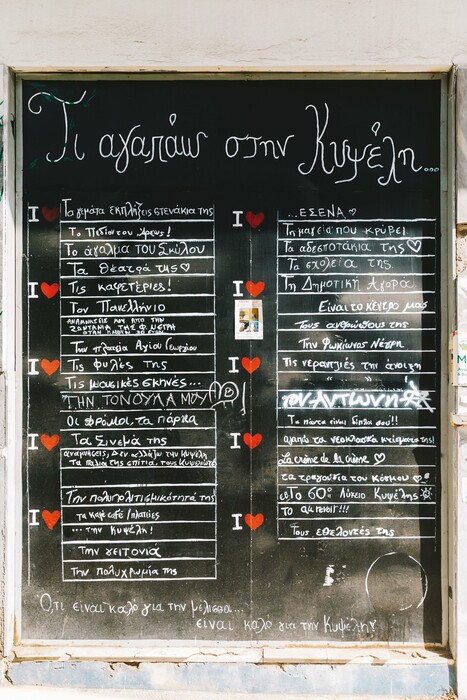 Τι αγαπάω στην Κυψέλη...
I Τα γεμάτα εκπλήξεις στενάκια της
Το Πεδίον του Άρεως!
Το άγαλμα ΤΟΥ Σκύλου
Τα Θέατρά της
I Τις καφετέριες!
Τον Πανελλήνιο
ΑΝΑΜΝΗΣΕΙΣ ΜΟΥ ΑΠΟ ΤΗΝ
ΖΩΝΤΑΝΙΑ ΤΗΣ Φ. ΝΕΓΡΗ
Την πλατεία Αγίου Γεωργίου
I Τις Φυλές της
Τις μουσικές σκηνές...
ΤΗΝ ΤΟΝΟΥΛΑ ΜΟΥ
Οι δρόμοι, τα πάρκα
I Τα Σινεμά της
αναμνήσεις, Δεν αλλάζω την Κυψέλη
Τα παλιά της σπίτια, τους Κυψελιώτες
Την πολυπολιτισμικότητά της
I τα καφέ / πλατείες
... την Κυψέλη!
Την γειτονιά
Την πολυχρωμία της
I ...ΕΣΕΝΑ
Τη μαγεία που κρύβει
Τα αδεσποτάκια της
Τα σχολεία της
I Τη Δημοτική Αγορά
Είναι το κέντρο μας
Τους ανθρώπους της
Την Φωκίωνος Νέγρη
I Τις νεραντζιές της άνοιξη
ΤΟΝ ΑΝΤΩΝΗ
Τα πάντα είναι δίπλα σου!!
I αγαπώ τα νεοκλασικά κτίσματα της!
La crème de la crème
τα τραγούδια του κόσμου
Το 60° Λύκειο Κυψέλης
I Το
Τους εθελοντές της
Ό,τι είναι καλό για την μέλισσα...
είναι καλό για την Κυψέλη!